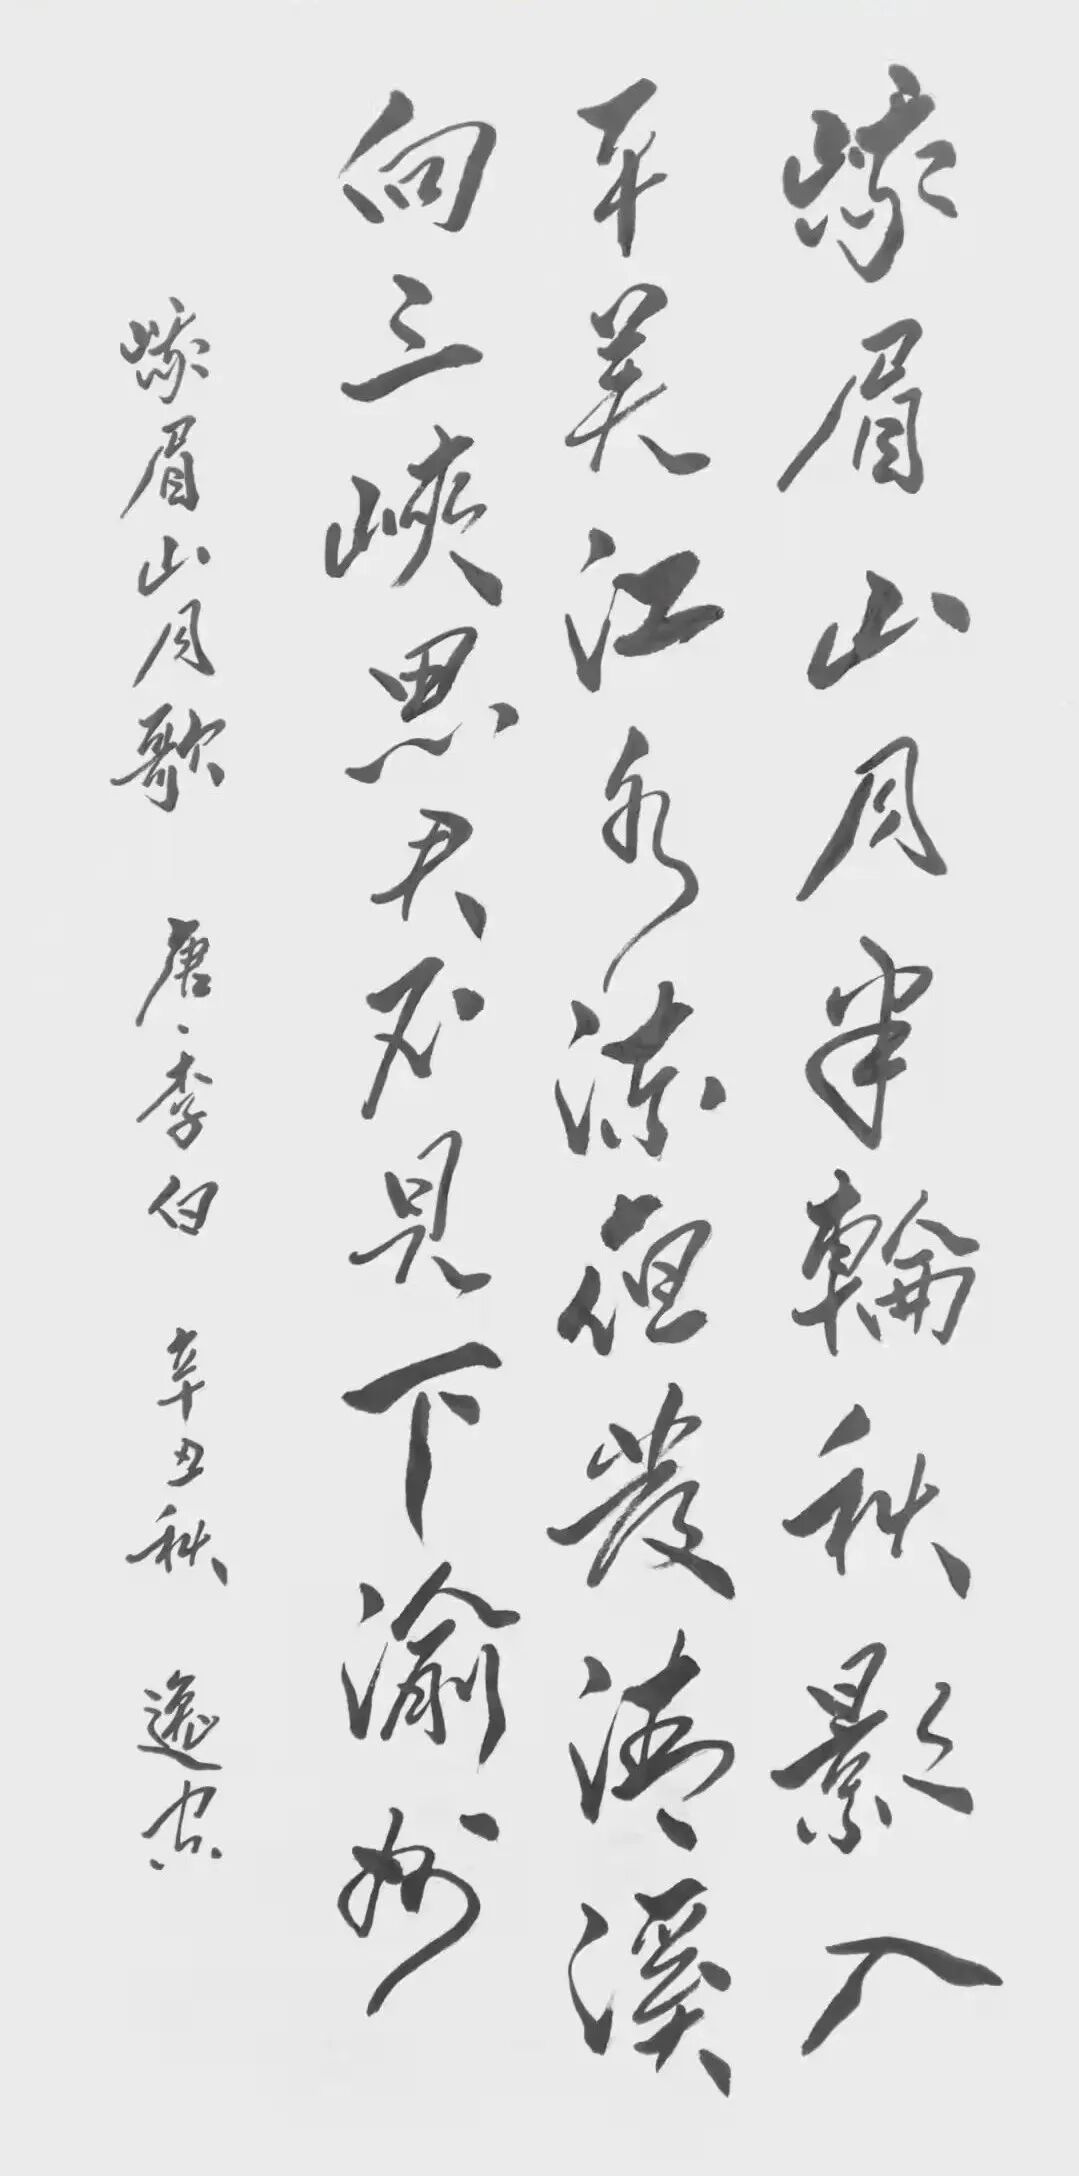 峨眉山月半輪秋影入
平羌江水流發清溪
向三峽思君不見下渝州
峨眉山月歌 唐·李白 辛丑秋 逸